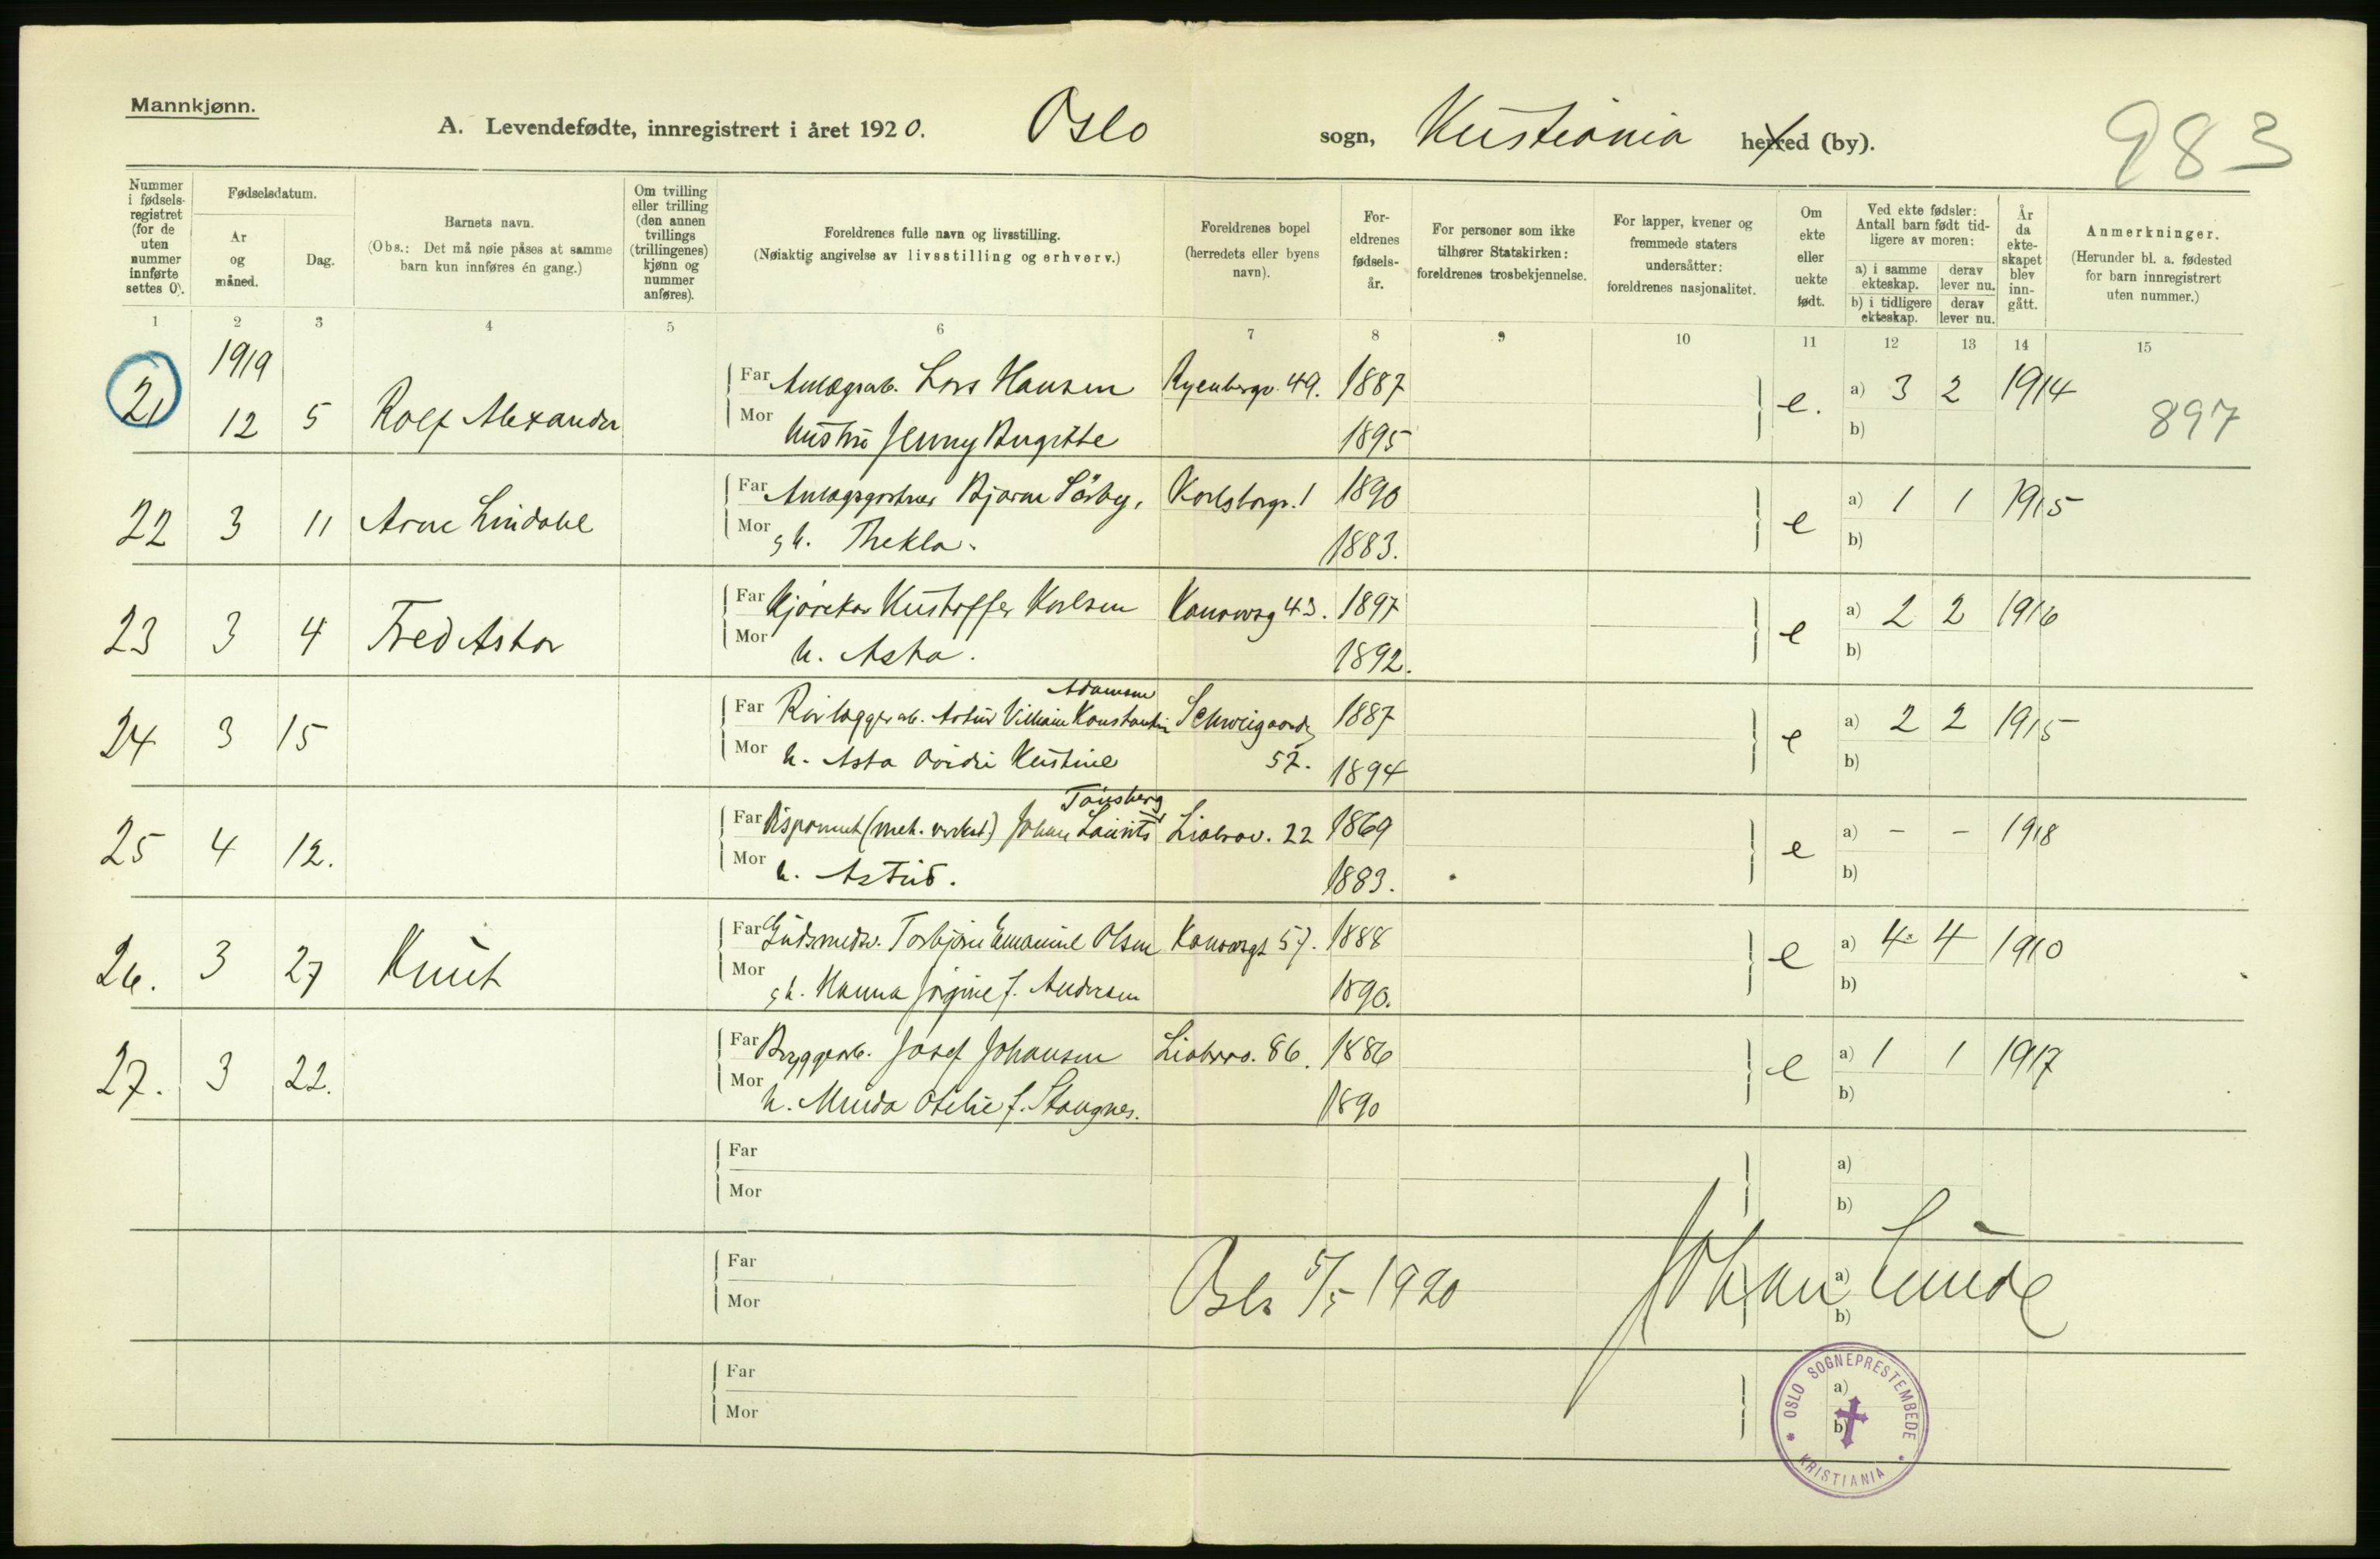 Mannkjønn.
A. Levendefødte, innregistrert i året 1920. Oslo sogn, Kristiania herred (by).
983
Nummer i fødselsregistret (for de uten nummer innførte settes 0).
Fødselsdatum.
År og måned.
Dag.
Barnets navn.
(Obs.: Det må nøie påses at samme barn kun innføres én gang.)
Om tvilling eller trilling (den annen tvillings (trillingenes) kjønn og nummer anføres).
Foreldrenes fulle navn og livsstilling.
(Nøiaktig angivelse av livsstilling og erhverv.)
Foreldrenes bopel (herredets eller byens navn).
Foreldrenes fødselsår.
For personer som ikke tilhører Statskirken: foreldrenes trosbekjennelse.
For lapper, kvener og fremmede staters undersåtter: foreldrenes nasjonalitet.
Om ekte eller uekte født.
Ved ekte fødsler: Antall barn født tidligere av moren:
a) i samme ekteskap. derav lever nu.
b) i tidligere ekteskap. derav lever nu.
År da ekteskapet blev inngått.
Anmerkninger.
(Herunder bl. a. fødested for barn innregistrert uten nummer.)
1 2 3 4 5 6 7 8 9 10 11 12 13 14 15
1919
21 12 5 Rolf Alexander Far Anlægsarb. Lars Hansen Ryenbergv. 49. 1887 e. a) 3 2 1914 897
Mor hustru Jenny Birgitte 1895 b)
22 3 11 Arne Lindahl Far Anlægsgartner Bjarne Sörby, Karlsborgv. 1 1890 e a) 1 1 1915
Mor h. Thekla. 1883. b)
23 3 4 Fred Asker Far Kjörekar Kristoffer Karlsen Kanowsg 43. 1897 e a) 2 2 1916
Mor h. Asta. 1892. b)
Adamsen
24 3 15 Far Rörlæggerarb. Artur Villiam Konstantin Schweigaards 1887 e a) 2 2 1915
Mor h. Asta Kristine 57. 1894 b)
Tönsberg
25 4 12. Far Disponent (mek. verkst.) Johan Laurits Liabrov. 22 1869 e a) - - 1918
Mor h. Astrid. 1883. b)
26. 3 27 Knut Far Gulsmedsv. Torbjörn Emanuel Olsen Kanowsgt 57. 1888 e a) 4 4 1910
Mor h. Hanna Jörgine f. Andersen 1890. b)
27. 3 22. Far Bryggearb. Josef Johansen Liabrov. 86. 1886 e a) 1 1 1917
Mor h. Minda Otelie f. Stangnes. 1890 b)
Far a)
Mor b)
Far a)
Mor b)
Oslo 5/5 1920 Johan Lunde
Far a)
Mor b)
OSLO SOGNEPRESTEMBEDE
KRISTIANIA